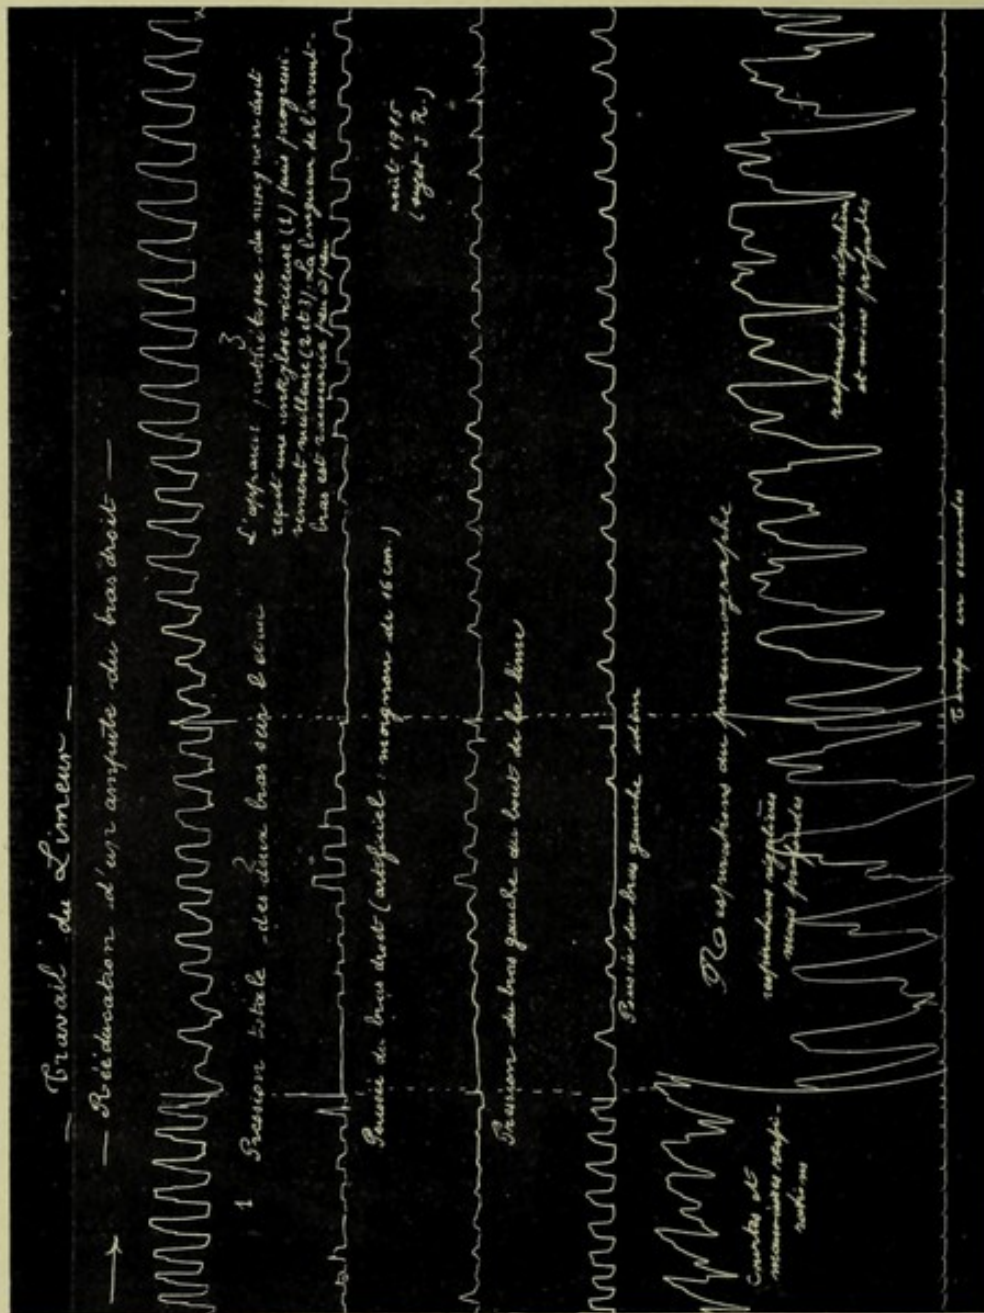 — Travail du Limeur —
— Rééducation d'un amputé du bras droit —
1
2
3
Pression totale des deux bras sur la lime
L'appareil prothétique du moignon droit
reçoit une vicieuse (1) puis progressi-
vement meilleure (2 et 3). La longueur de l'avant-
bras est peu à peu
Poussée du bras droit (artificiel : moignon de 16 cm.)
août 1915
(sujet J. R.)
Pression du bras gauche au bout de la lime
Poussée du bras gauche idem
Respirations au pneumographe
Courtes et
mauvaises respi-
rations
respirations régulières
mais profondes
respirations régulières
et moins profondes
Temps en secondes